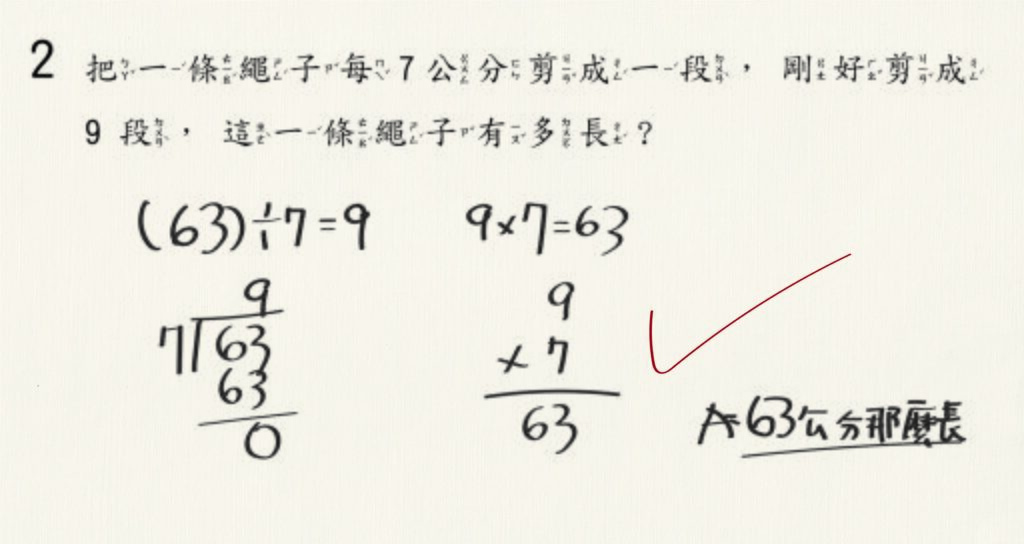 2 把一條繩子每7公分剪成一段，剛好剪成
9段，這一條繩子有多長？
(63)÷7=9
9×7=63
9
7 63
63
0
9
× 7
63
A=63公分那麼長